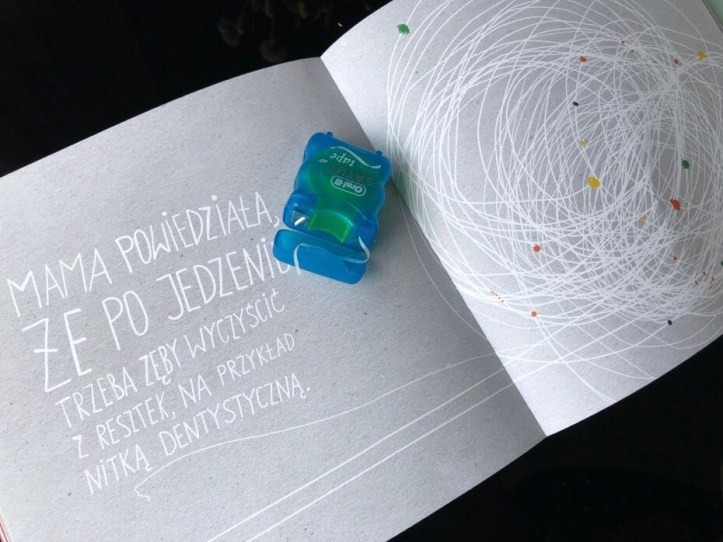 MAMA POWIEDZIAŁA,
ŻE PO JEDZENIU
TRZEBA ZĘBY WYCZYŚCIĆ
Z RESZTEK, NA PRZYKŁAD
NITKĄ DENTYSTYCZNĄ.
Oral-B
SATIN
tape